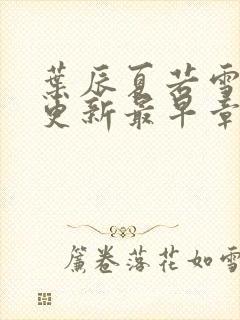 葉辰夏若雪
更新最早章
簾卷落花如雪